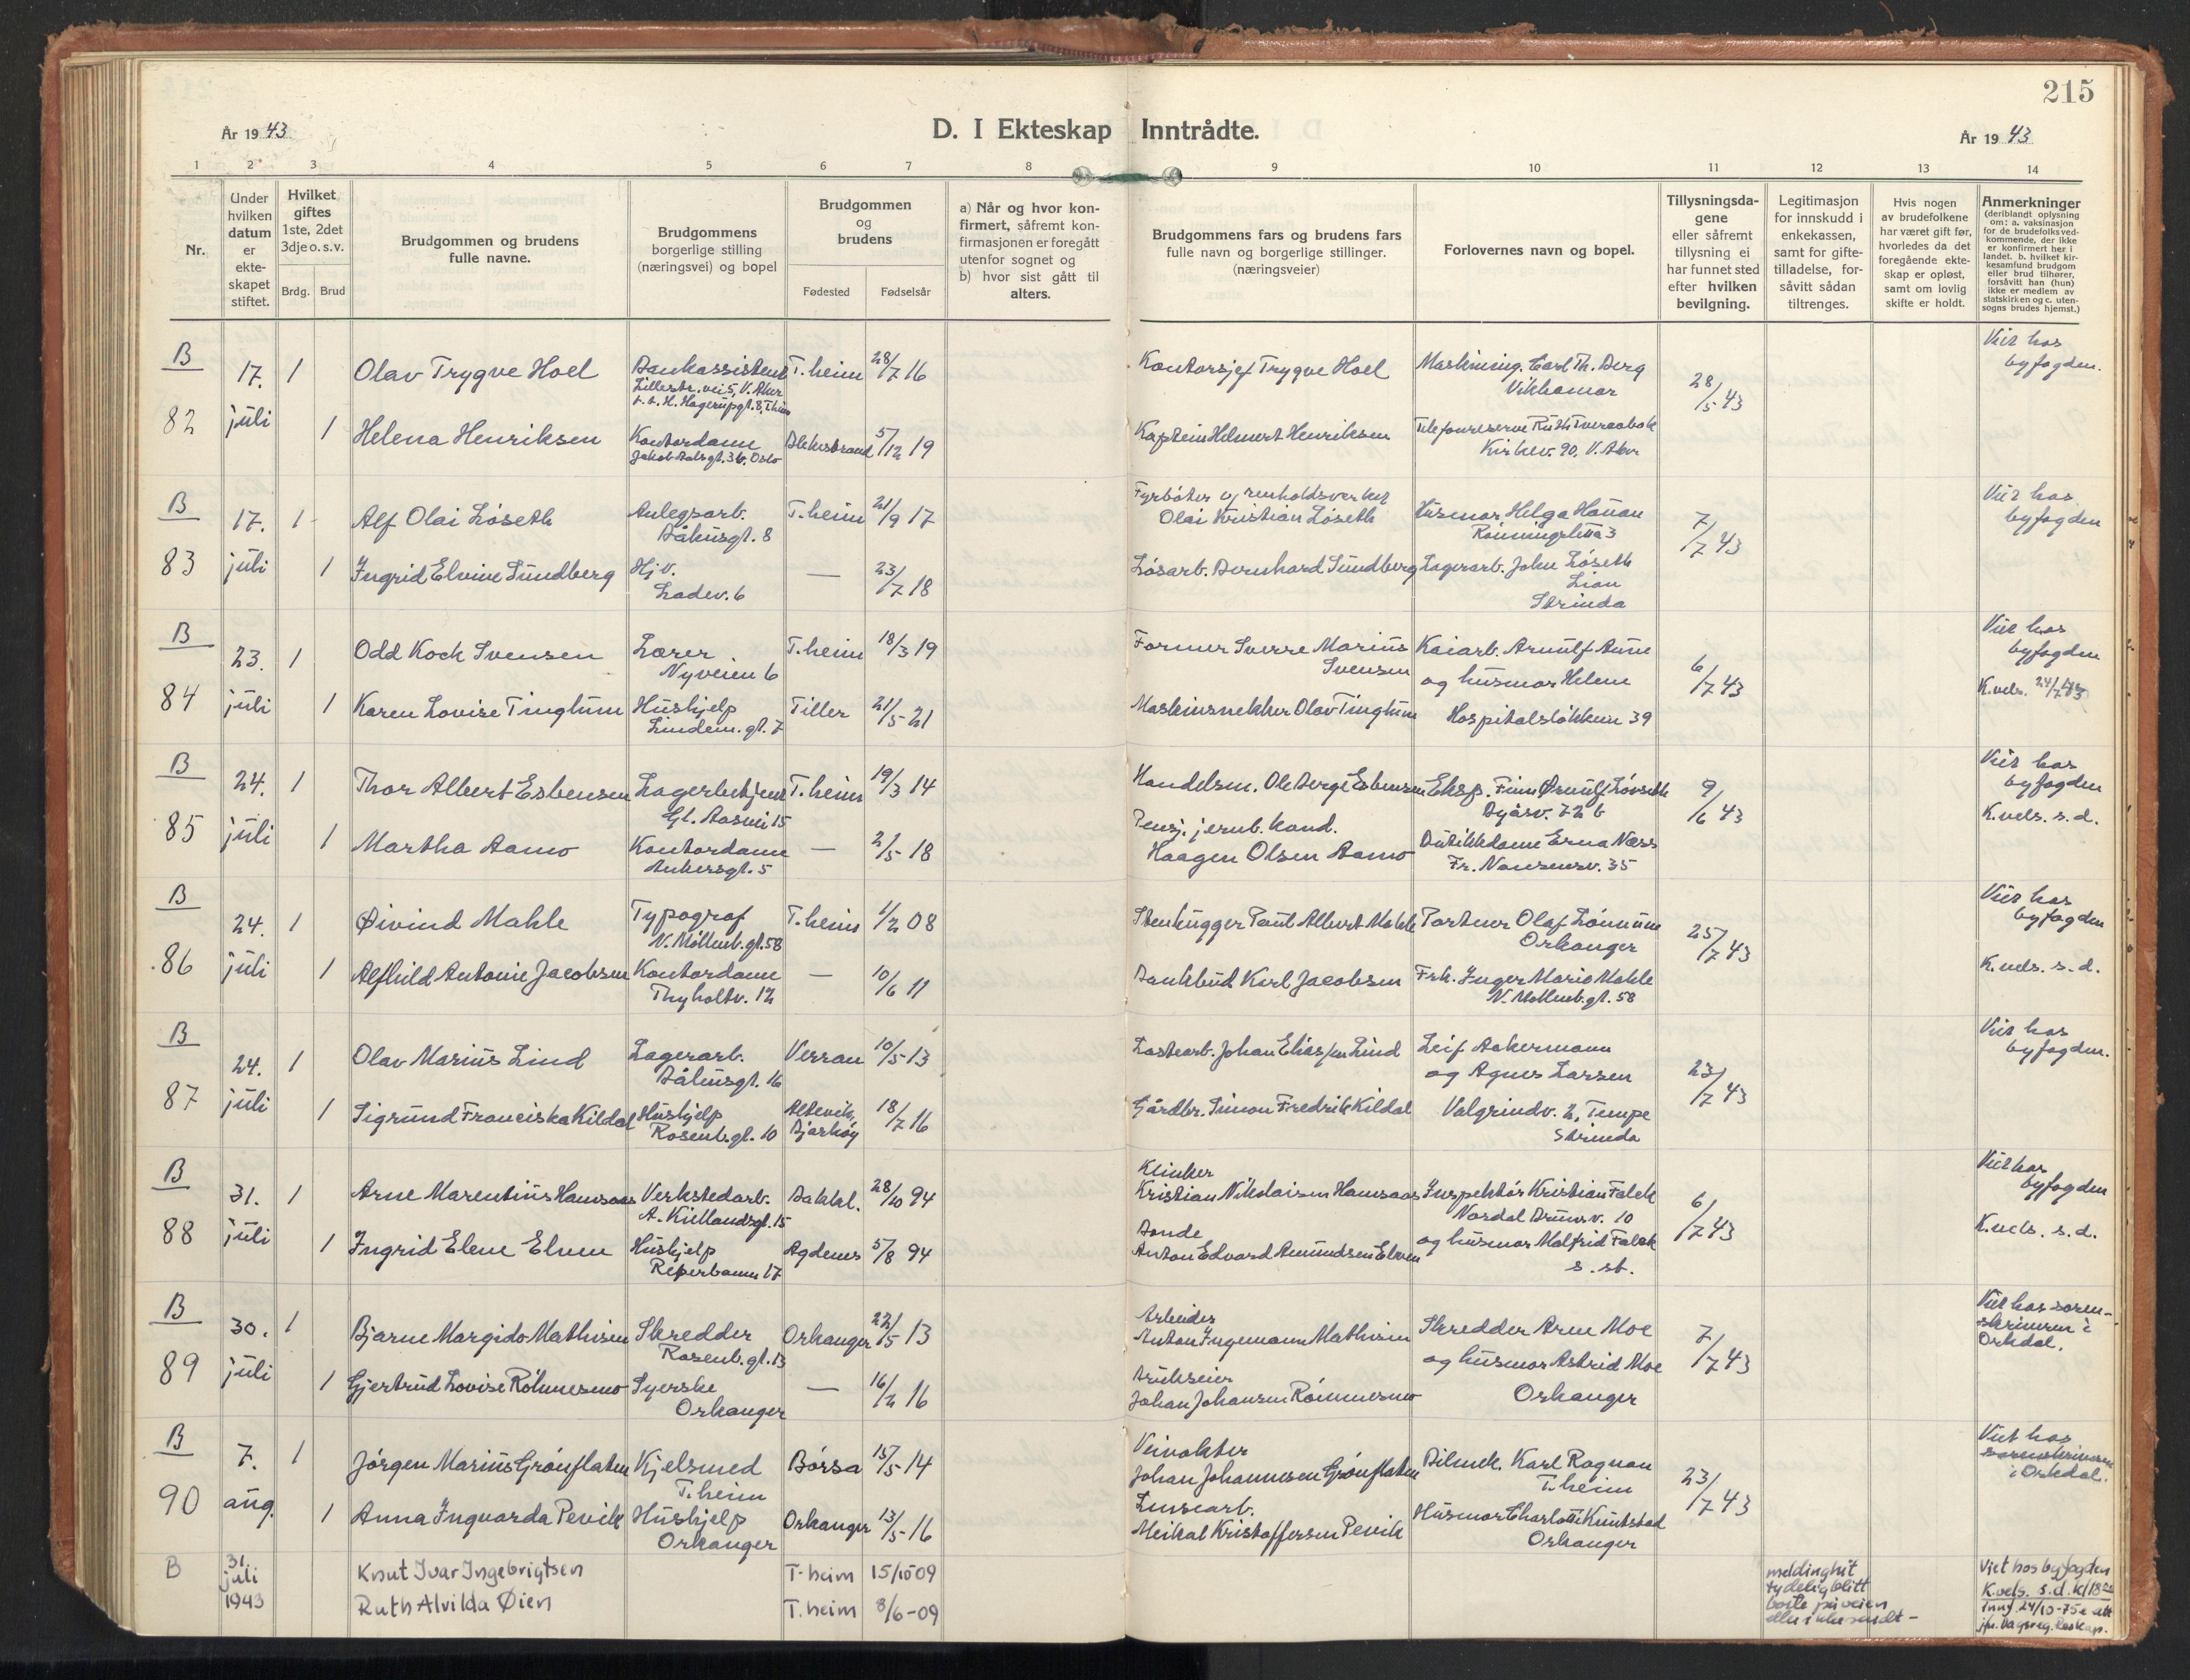 215
År 19 43
D. I Ekteskap Inntrådte.
År 19 43
1 2 3 4 5 6 7 8 9 10 11 12 13 14
Nr.
Under hvilken datum er ekteskapet stiftet.
Hvilket giftes 1ste, 2det 3dje o. s. v.
Brdg. Brud
Brudgommen og brudens fulle navne.
Brudgommens borgerlige stilling (næringsvei) og bopel
Brudgommen og brudens
Fødested Fødselsår
a) Når og hvor konfirmert, såfremt konfirmasjonen er foregått utenfor sognet og
b) hvor sist gått til alters.
Brudgommens fars og brudens fars fulle navn og borgerlige stillinger. (næringsveier)
Forlovernes navn og bopel.
Tillysningsdagene eller såfremt tillysning ei har funnet sted efter hvilken bevilgning.
Legitimasjon for innskudd i enkekassen, samt for giftetilladelse, forsåvitt sådan tiltrenges.
Hvis nogen av brudefolkene har været gift før, hvorledes da det foregående ekteskap er opløst, samt om lovlig skifte er holdt.
Anmerkninger (deriblandt oplysning om: a. vaksinasjon for de brudefolks vedkommende, der ikke er konfirmert her i landet. b. hvilket kirkesamfund brudgom eller brud tilhører, forsåvitt han (hun) ikke er medlem av statskirken og c. utensogns brudes hjemst.)
B
82
17. juli
1
Olav Trygve Hoel
Bankassistent
Lillestr. vei 5, V. Aker
t. t. H. Hagerupgt. 8, T.heim
T. heim 28/7 16
Kontorsjef Trygve Hoel
Maskining. Carl Th. Berg
Vikhamar
28/5 43
Viet hos
byfogden.
1
Helena Henriksen
Kontordame
Jakob Aalsgt. 36, Oslo
5/12 19
Kaptein Helmert Henriksen
Kirkev. 90, V. Aker
B
83
17. juli
1
Alf Olai Løseth
Anlegsarb.
Båhusgt. 8
T. heim 21/9 17
Fyrbøter v/ renholdsverket
Olai Kristian Løseth
Husmor Helga Hanan
Rønningsletta 3
7/7 43
Viet hos
byfogden
1
Ingrid Elvine Sundberg
Hjv.
Ladev. 6
— 23/7 18
Løsarb. Bernhard Sundberg
Lagerarb. John Løseth
Lian
Strinda
B
84
23. juli
1
Odd Kock Svensen
Lærer
Nyveien 6
T. heim 18/3 19
Former Sverre Marius
Svensen
Kaiarb. Arnulf Aune
og husmor Helene
Hospitalsløkken 39
6/7 43
Viet hos
byfogden
K. vels. 24/7 43
1
Karen Lovise Tinglum
Hushjelp
Lindem. gt. 7
Tiller 21/5 21
Maskinsnekker Olav Tinglum
B
85
24. juli
1
Thor Albert Esbensen
Lagerbetjent
Gl. Aasvei 15
T. heim 19/3 14
Handelsm. Ole Berge Esbensen
Eksp. Finn Ørnulf Løvseth
Byåsv. 72 b
9/6 43
Viet hos
byfogden
K. vels. s. d.
1
Martha Aamo
Kontordame
Ankersgt. 5
— 2/5 18
Pensj. jernb. kond.
Haagen Olsen Aamo
Butikkdame Erna Næss
Fr. Nansensv. 35
B
86
24. juli
1
Øivind Mahle
Typograf
N. Møllenb. gt. 58
T. heim 1/2 08
Stenhugger Paul Albert Mahle
Portner Olaf Lønnum
Orkanger
25/7 43
Viet hos
byfogden
K. vels. s. d.
1
Alfhild Antonie Jacobsen
Kontordame
Thyholtv. 12
— 10/6 11
Bankbud Karl Jacobsen
Frk. Inger Marie Mahle
N. Møllenb. gt. 58
B
87
24. juli
1
Olav Marius Lind
Lagerarb.
Båhusgt. 16
Verran 10/5 13
Lastearb. Johan Eliassen Lind
Leif Ackermann
og Agnes Larsen
Valgrindv. 2, Tempe
Strinda
23/7 43
Viet hos
byfogden.
1
Sigrund Franciska Kildal
Hushjelp
Rosenb. gt. 10
Altevik,
Bjarkøy
18/7 16
Gårdbr. Simon Fredrik Kildal
B
88
31. juli
1
Arne Marentius Hamsaas
Verkstedarb.
A. Kiellandsgt. 15
Bakkl. 28/10 94
Klinker
Kristian Nikolaisen Hamsaas
Inspektør Kristian Falck
Nordal Brunsv. 10
og husmor Malfrid Falck
s. st.
6/7 43
Viet hos
byfogden
K. vels. s. d.
1
Ingrid Elene Elven
Hushjelp
Reperbanen 17
Agdenes 5/8 94
Bonde
Anton Edvard Amundsen Elven
B
89
30. juli
1
Bjarne Margido Mathisen
Skredder
Rosenb. gt. 13
Orkanger 22/5 13
Arbeider
Anton Ingemann Mathisen
Skredder Arne Moe
og husmor Astrid Moe
Orkanger
7/7 43
Viet hos soren-
skriveren i
Orkdal.
1
Gjertrud Lovise Rømmesmo
Syerske
Orkanger
— 16/2 16
Brukseier
Johan Johansen Rømmesmo
B
90
7. aug.
1
Jørgen Marius Grønflaten
Kjelsmed
T. heim
Børsa 15/5 14
Veivokter
Johan Johannesen Grønflaten
Bilmek. Karl Ragnar
T. heim
23/7 43
Viet hos
sorenskriveren
i Orkdal.
1
Anna Ingvarda Pevik
Hushjelp
Orkanger
Orkanger 13/5 16
Lensearb.
Meikal Kristoffersen Pevik
Husmor Charlotte Knutstad
Orkanger
B
31. juli 1943
Knut Ivar Ingebrigtsen
T. heim 15/10 09
Ruth Alvilda Øien
T. heim 8/6 - 09
melding hit
tydelig blitt
borte på veien
eller ikke sendt -
Viet hos byfogden
K. vels. s. d. kl 18 00
Innf 24/10-75